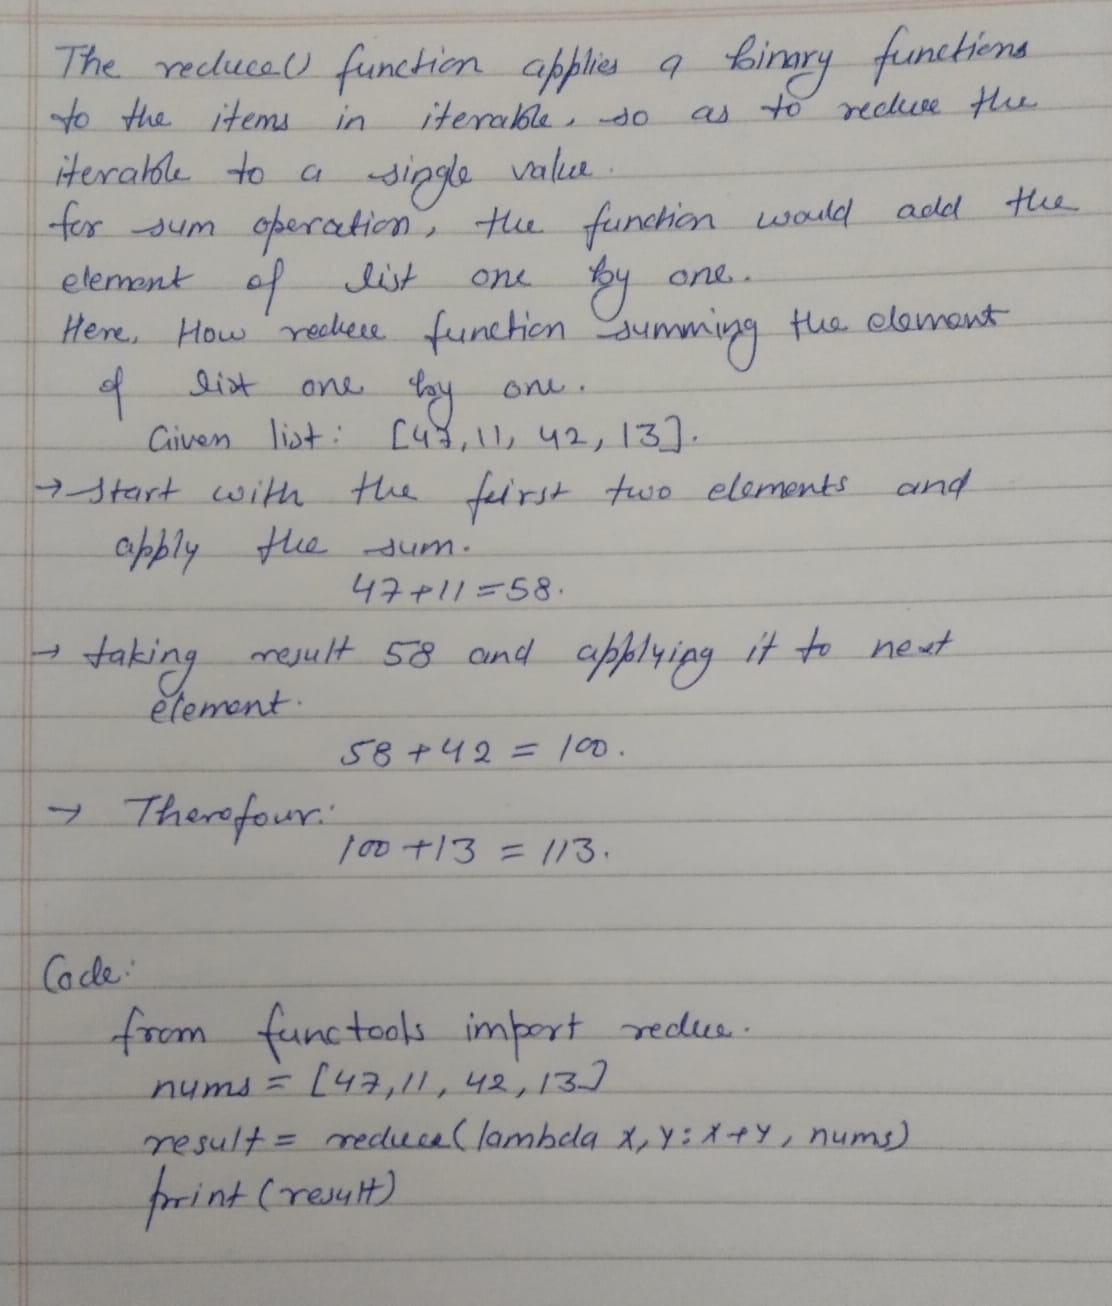 The reduce() function applies a binary functions
to the items in iterable, so as to reduce the
iterable to a single value.
for sum operation, the function would add the
element of list one by one.
Here, How reduce function summing the element
of list one by one.
Given list: [47, 11, 42, 13].
→ Start with the first two elements and
apply the sum.
47+11=58.
→ taking result 58 and applying it to next
element.
58+42 = 100.
→ Therefour:
100+13 = 113.
Code:
from functools import reduce.
nums = [47, 11, 42, 13]
result = reduce(lambda x, y: x+y, nums)
print(result)